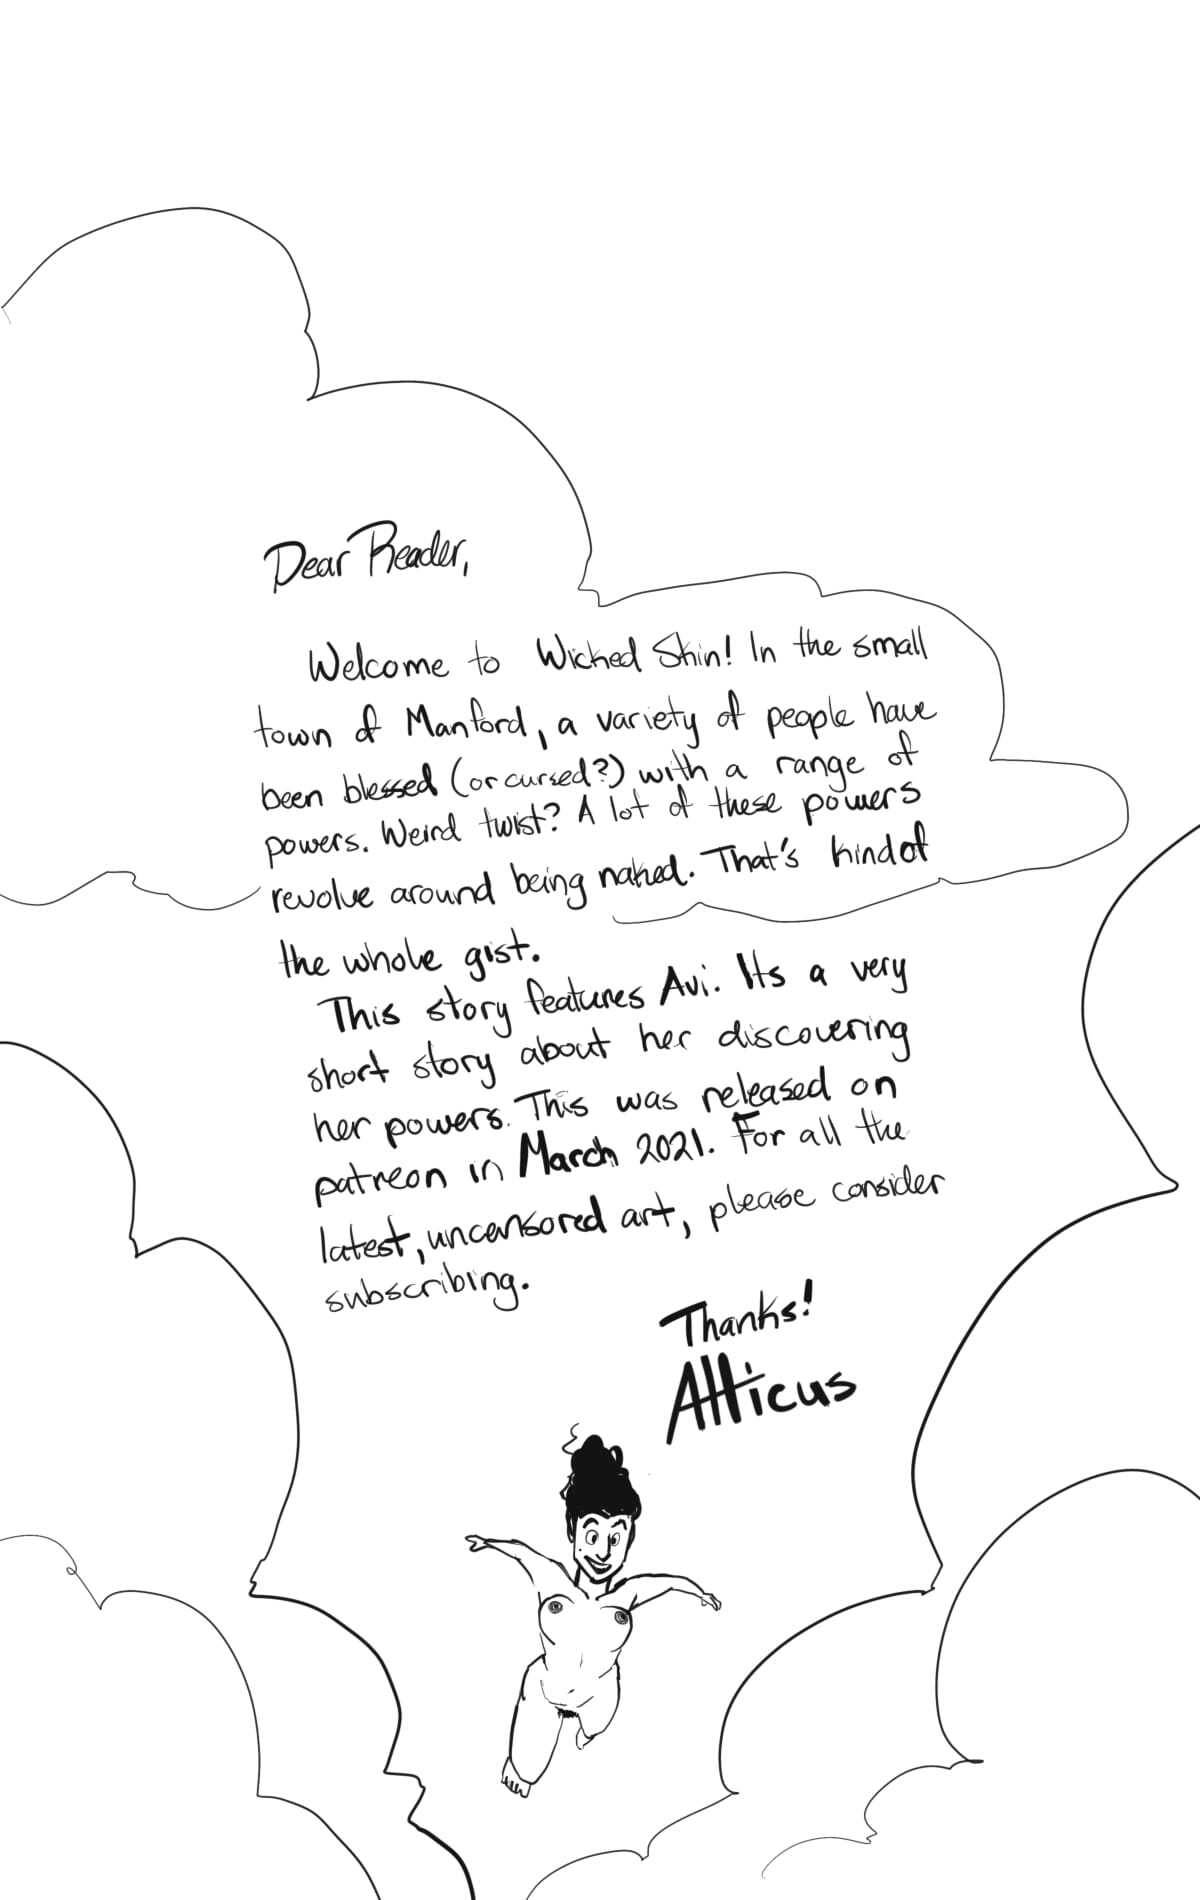 Dear Reader,
Welcome to Wicked Skin! In the small
town of Manford, a variety of people have
been blessed (or cursed?) with a range of
powers. Weird twist? A lot of these powers
revolve around being naked. That's kind of
the whole gist.
This story features Avi. Its a very
short story about her discovering
her powers. This was released on
patreon in March 2021. For all the
latest, uncensored art, please consider
subscribing.
Thanks!
Atticus